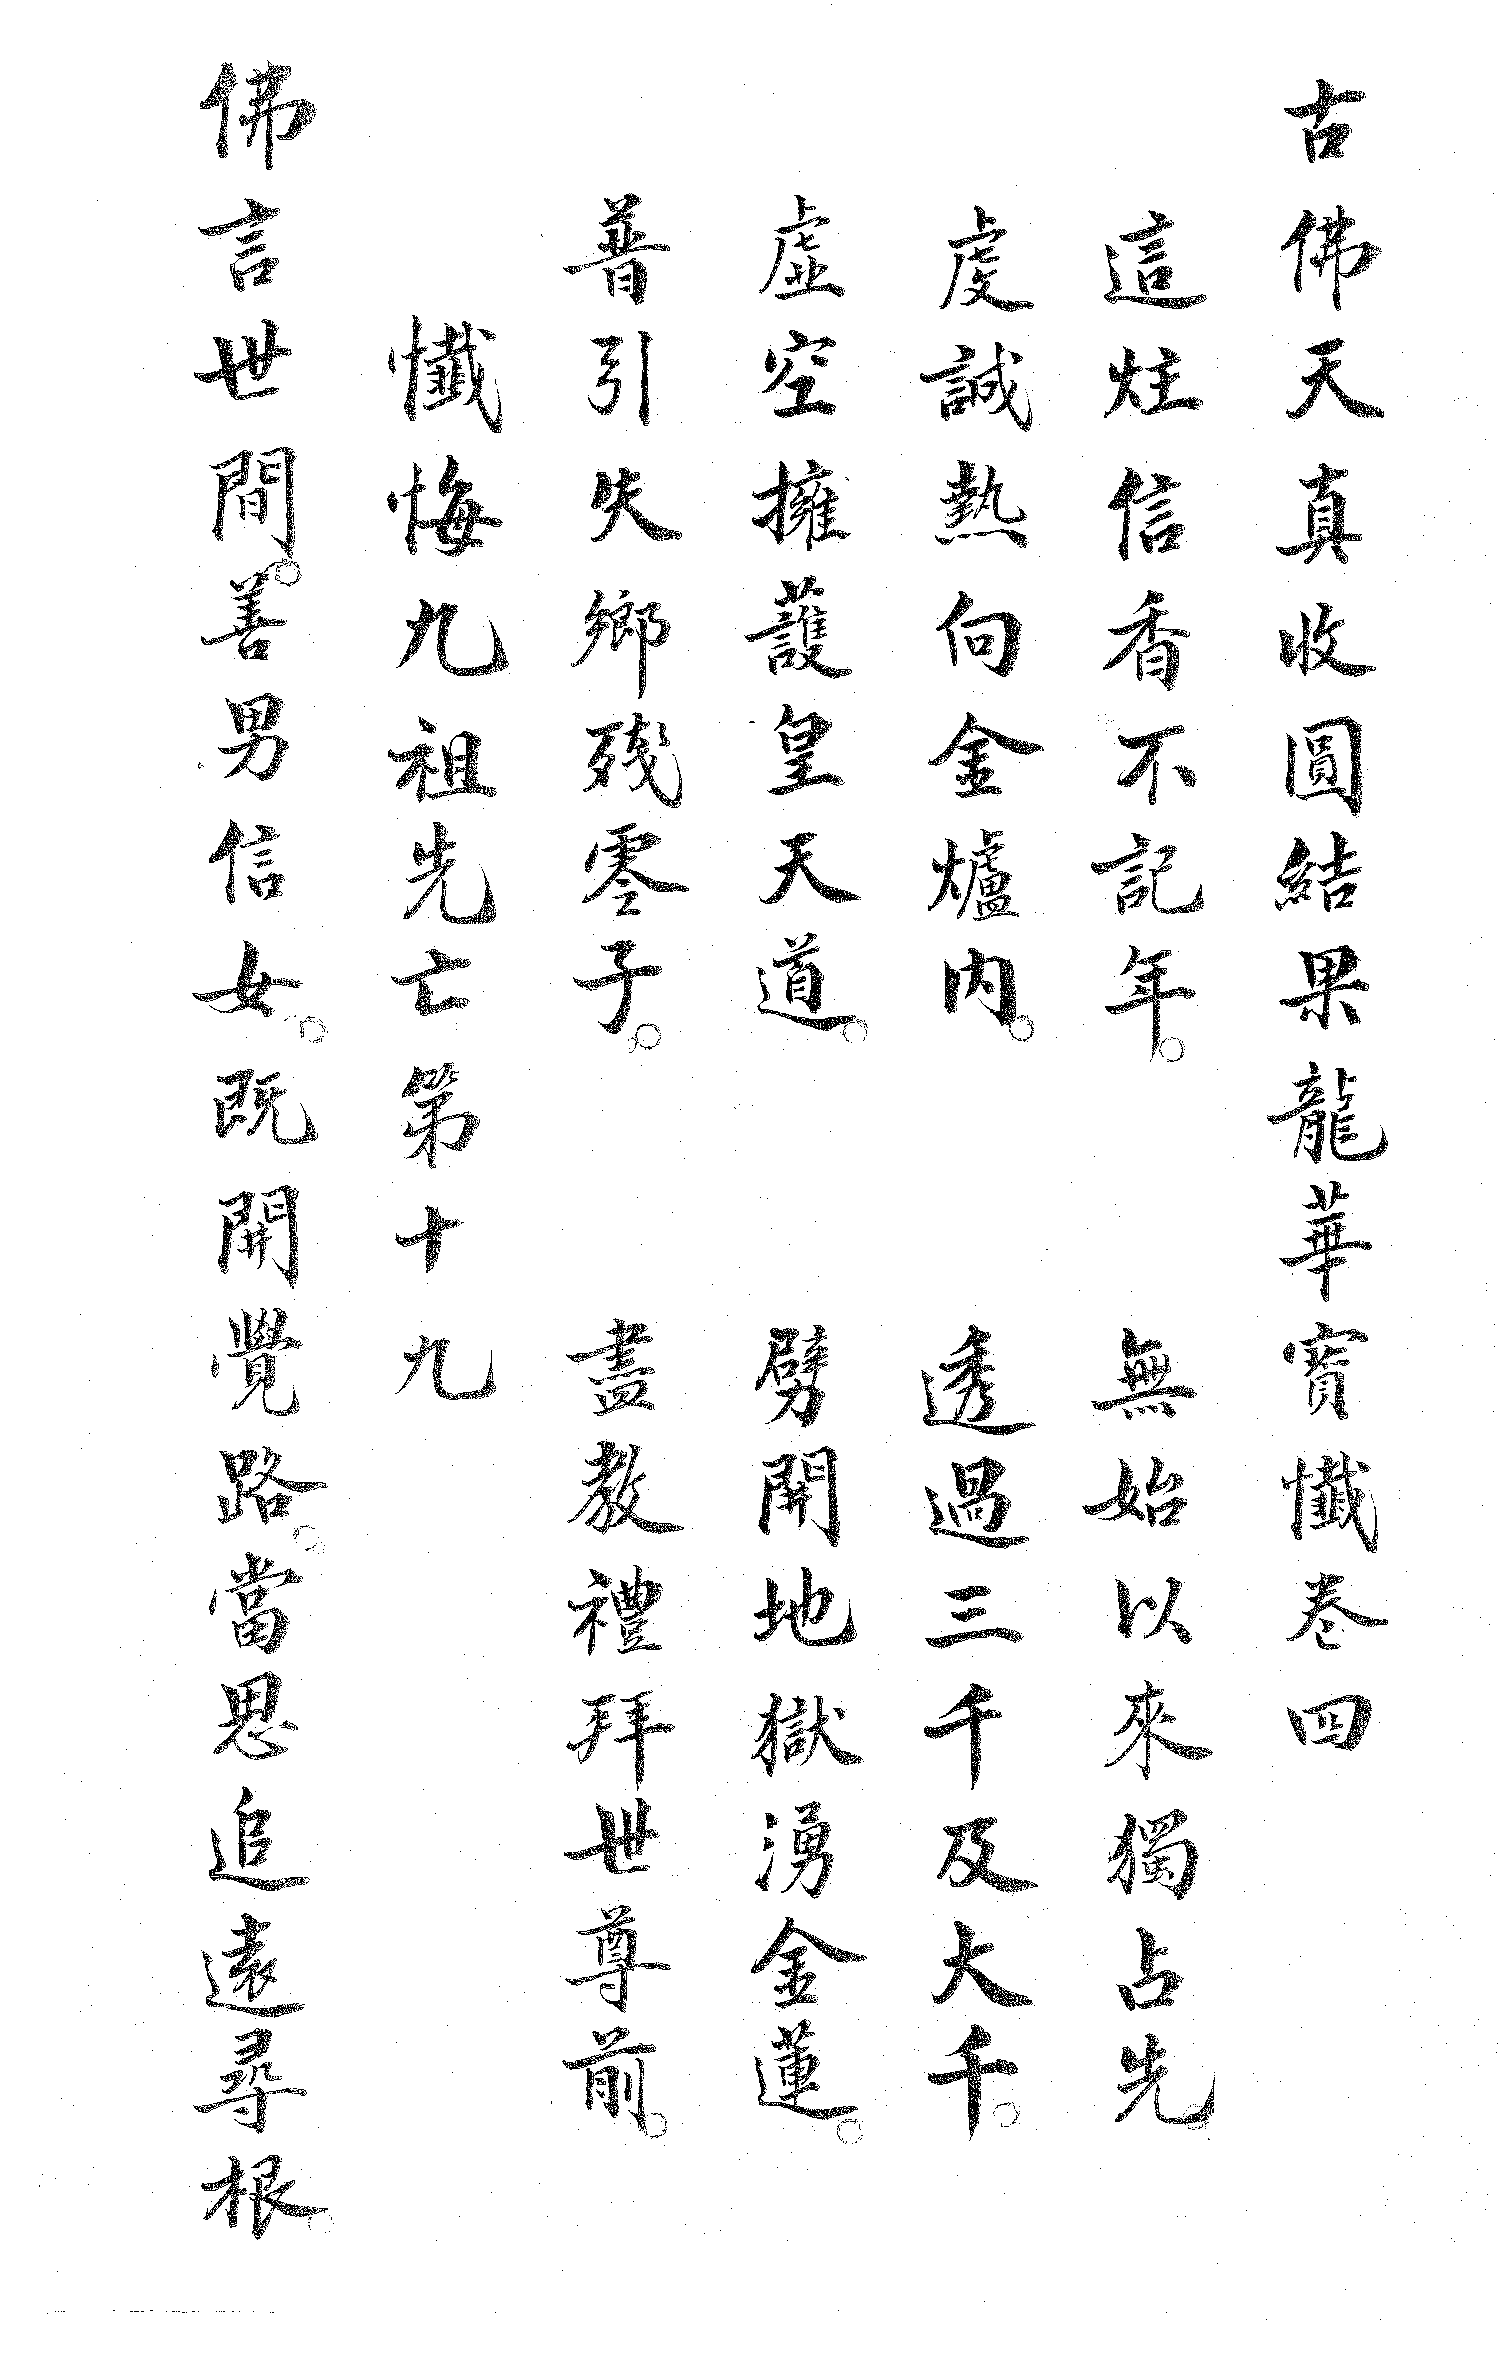 古佛天真收圓結果龍華寶懺卷四
這炷信香不記年。　無始以來獨占先。
虔誠熱向金爐內。　透過三千及大千。
虛空擁護皇天道。　劈開地獄湧金蓮。
普引失鄉殘零子。　盡教禮拜世尊前。
懺悔九祖先亡第十九
佛言世間。善男信女。既開覺路。當思追遠尋根。